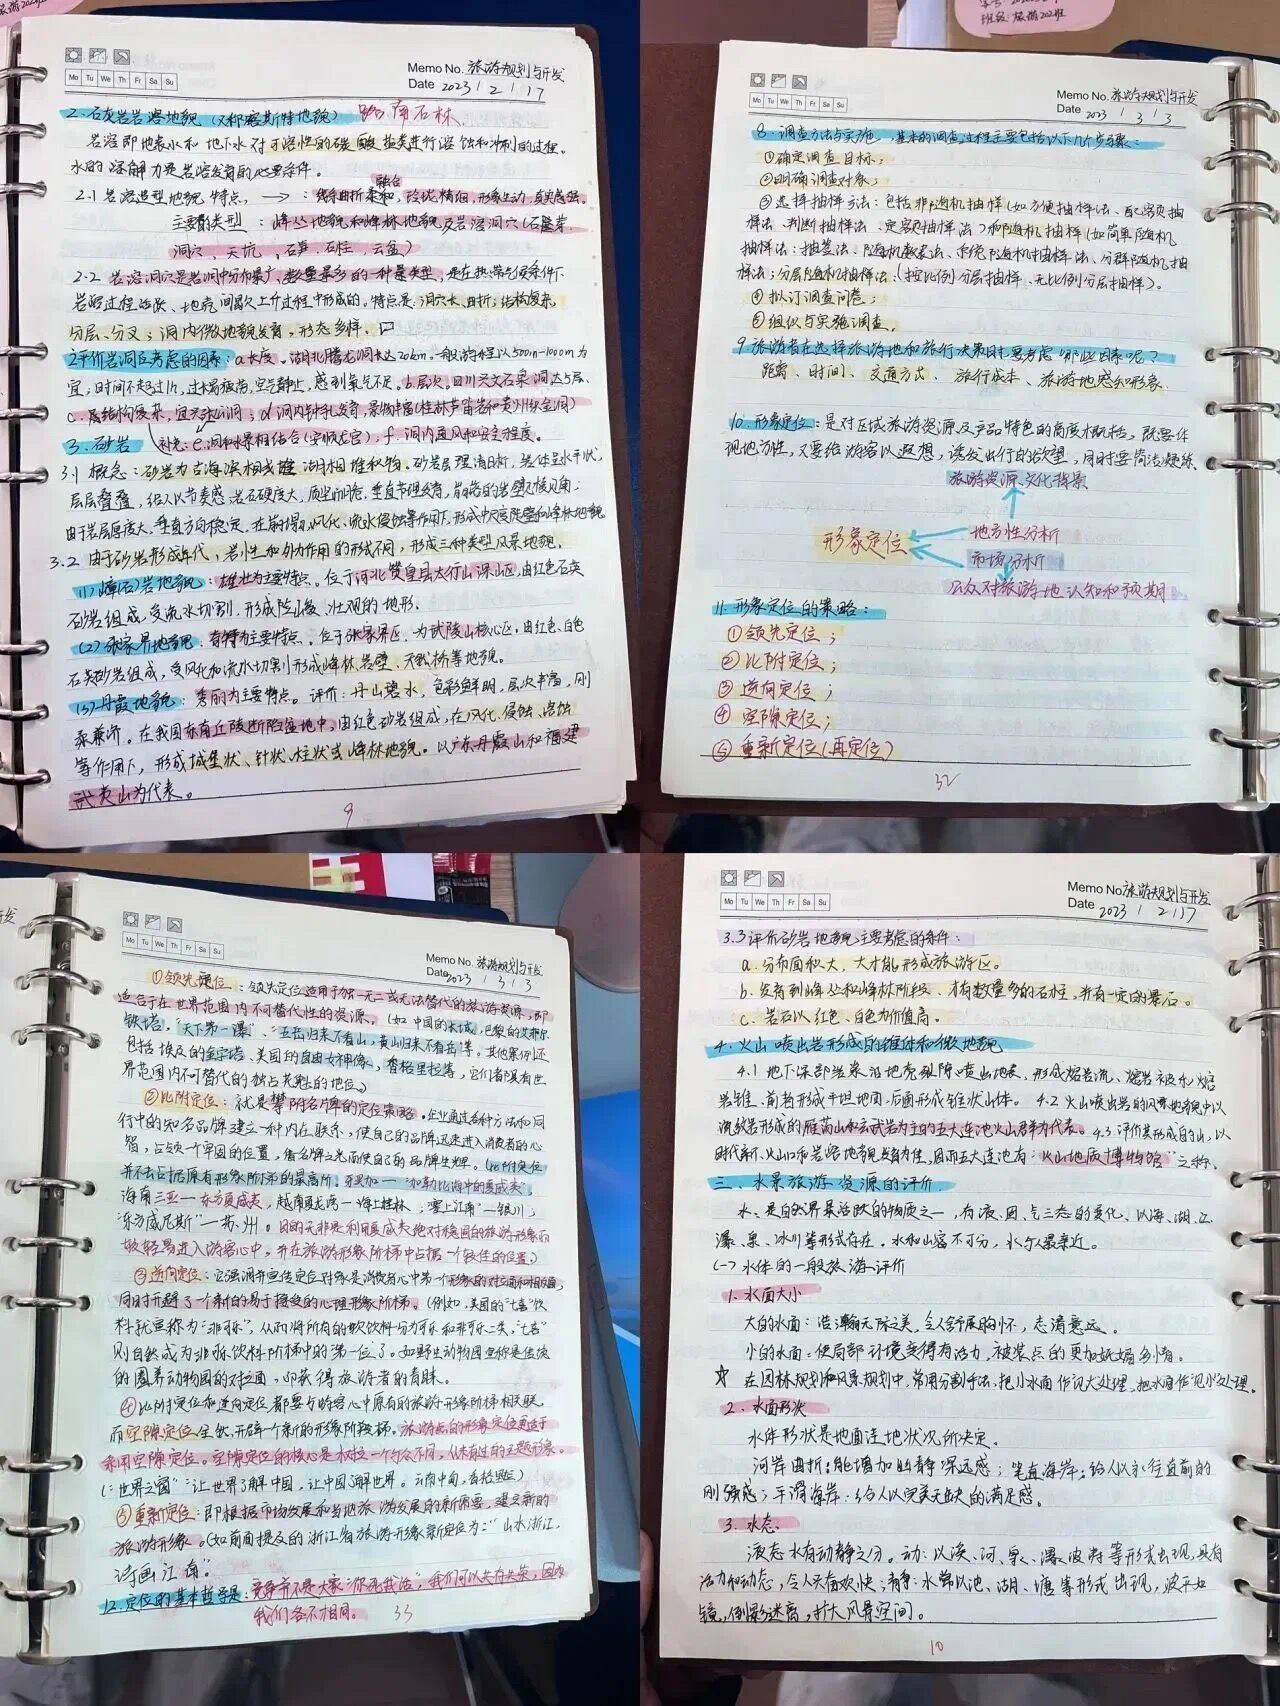 Memo No. 旅游规划与开发
Mo Tu We Th Fr Sa Su
Date 2023 / 2 / 17
2.石灰岩岩溶地貌（又称喀斯特地貌） 路南石林
岩溶即地表水和地下水对可溶性的碳酸盐类进行溶蚀和冲刷的过程。
水的溶解力是岩溶发育的必要条件。
融合
2.1 岩溶造型地貌特点，→：线条曲折柔和，玲珑精细，形象生动，真实感强。
主要的类型：峰丛地貌和峰林地貌及岩溶洞穴（石芽、
洞穴、天坑，石笋，石柱，云盆）
2.2 岩溶洞穴是岩洞中分布最广、数量最多的一种景类型，是在热带气候条件下
岩溶过程活跃、地壳间歇上升过程中形成的。特点是：洞穴长、曲折；结构复杂，
分层、分叉；洞内微地貌发育，形态多样。
评价岩洞应考虑的因素：a.长度。湖北腾龙洞长达20km。一般游程以500m-1000m为
宜，时间不超过1h，过长易疲劳，空气静止，感到氧气不足，b.层次，四川兴文石梁洞达5层、
c.结构复杂，宜兴张公洞；d.洞内钟乳发育，景物丰富（桂林芦笛岩和黄川织金洞）
3.砂岩 补充：e.洞和水景相结合（安顺龙宫），f.洞内通风和安全程度。
3.1 概念：砂岩为古海滨相或湖相堆积物。砂岩层理清晰，岩体呈水平状，
层层叠叠，给人以节奏感。岩石硬度大，质坚而脆，垂直节理发育，崩落的岩壁见棱见角。
由于岩层厚度大，垂直方向稳定，在崩塌、风化、流水侵蚀等作用下，形成中尺度陡壁和峰林地貌
3.2 由于砂岩形成年代，岩性和外力作用的形式不同，形成三种类型风景地貌。
(1)嶂(石)岩地貌：雄壮为主要特点。位于河北赞皇县太行山深山区，由红色石英
石砂岩组成，受流水切割，形成险峻、壮观的地形.
(2)张家界地貌：奇特为主要特点。位于张家界区，为武陵山核心区，由红色、白色
石英砂岩组成，受风化和流水切割形成峰林、岩壁、天然桥等地貌。
(3)丹霞地貌：秀丽为主要特点。评价：丹山碧水，色彩鲜明，层次丰富，刚
柔兼济。在我国东南丘陵断陷盆地中，由红色砂岩组成，在风化、侵蚀、溶蚀
等作用下，形成城堡状、针状、柱状或峰林地貌。以广东丹霞山和福建
武夷山为代表。
9
班级：旅游202班
Memo No. 旅游规划与开发
Mo Tu We Th Fr Sa Su
Date 2023 / 3 / 3
8.调查方法与实施，基本的调查过程主要包括以下几个步骤：
①确定调查目标；
②明确调查对象；
③选择抽样方法：包括非随机抽样（如方便抽样法、配额抽
样法、判断抽样法、定额抽样法）和随机抽样（如简单随机
抽样法：抽签法、随机数表法、系统随机抽样法、分群随机抽
样法；分层随机抽样法：（按比例分层抽样、无比例分层抽样）。
④拟订调查问卷；
⑤组织与实施调查。
9.旅游者在选择旅游地和旅行决策时要考虑哪些因素呢？
距离、时间、交通方式、旅行成本、旅游地感知形象
10.形象定位：是对区域旅游资源及产品特色的高度概括，既要体
现地方性，又要给游客以遐想，诱发出行的欲望，同时要简洁凝练
旅游资源、文化背景
地方性分析
形象定位
市场分析
公众对旅游地认知和预期
11.形象定位的策略：
①领先定位；
②比附定位；
③逆向定位；
④空隙定位；
⑤重新定位（再定位）
32
开发
Memo No. 旅游规划与开发
Mo Tu We Th Fr Sa Su
Date 2023 / 3 / 3
①领先定位：领先定位适用于独一无二或无法替代的旅游资源，即
适合于在世界范围内不可替代性的资源。（如中国的长城，巴黎的艾菲尔
铁塔，“天下第一瀑”、“五岳归来不看山，黄山归来不看岳”等。其他案例还
包括埃及的金字塔、美国的自由女神像，香格里拉等，它们都具有世
界范围内不可替代的独占花魁的地位）
②比附定位：就是攀附名牌的定位策略。企业通过各种方法和同
行中的知名品牌建立一种内在联系，使自己的品牌迅速进入消费者的心
智，占领一个牢固的位置，借名牌之光而使自己的品牌生辉。（比附定位
并不去占据原有形象阶梯的最高阶。牙买加——“加勒比海中的夏威夷”，
海南三亚——东方夏威夷，越南夏龙湾——海上桂林，“塞上江南”——银川；
“东方威尼斯”——苏州。目的无非是利用夏威夷绝对稳固的旅游形象而
较轻易进入游客心中，并在旅游形象阶梯中占据一个较佳的位置）
③逆向定位：它强调并宣传定位对象是消费者心中第一个形象的对立面和相反面，
同时开辟了一个新的易于接受的心理形象阶梯。（例如，美国的“七喜”饮
料就宣称为“非可乐”，从而将所有的软饮料分为可乐和非可乐二类，“七喜”
则自然成为非可乐饮料阶梯中的第一位了。如野生动物园宣称是传统
的圈养动物园的对立面，即获得旅游者的青睐。
④比附定位和逆向定位都要与游客心中原有的旅游形象阶梯相关联
而空隙定位全然开辟一个新的形象阶梯。旅游点的形象定位更适于
采用空隙定位。空隙定位的核心是树立一个与众不同，从未有过的主题形象。
（“世界之窗”“让世界了解中国，让中国了解世界。云南中甸，香格里拉）
⑤重新定位：即根据市场发展和当地旅游发展的新需要，建立新的
旅游形象。（如前面提及的浙江省旅游形象新定位为：“山水浙江，
诗画江南”
12.定位的基本哲学是：竞争并不是大家“你死我活”，我们可以共存共荣，因为
我们各不相同。 33
Memo No. 旅游规划与开发
Mo Tu We Th Fr Sa Su
Date 2023 / 2 / 17
3.3 评价砂岩地貌主要考虑的条件：
a.分布面积大，大才能形成旅游区。
b.发育到峰丛和峰林阶段，才有数量多的石柱，并有一定的景石。
c.岩石以红色、白色为价值高。
4.火山喷出岩形成的锥体和微地貌
4.1 地下深部岩浆沿地壳裂隙喷出地表，形成熔岩流、熔岩被和火熔
岩锥，前者形成平坦地面，后面形成锥状山体。4.2 火山喷出岩的风景地貌中以
流纹岩形成的雁荡山和玄武岩为主的五大连池火山群为代表。4.3 评价其形成的山，以
时代新，火山口和岩熔地貌发育为佳，因而五大连池有：“火山地质博物馆”之称。
三、水景旅游资源的评价。
水：是自然界最活跃的物质之一，有液、固、气三态的变化，以海、湖、江、
瀑、泉、冰川等形式存在。水和山密不可分，水与人最亲近。
(一)水体的一般旅游评价
1.水面大小
大的水面：浩瀚无际之美，令人舒展胸怀，志清意远。
小的水面：使局部环境变得有活力，被装点的更加妩媚多情。
☆在园林规划和风景规划中，常用分割手法，把小水面作见大处理，把水面作见小处理。
2.水面形状
水体形状是地面洼地状况所决定。
河岸曲折：能增加幽静深远感；笔直海岸：给人以永往直前的
刚强感；平滑海岸：给人以完美无缺的满足感。
3.水态。
液态水有动静之分。动：以溪、河、泉、瀑、波涛等形式出现，具有
活力和动态，令人天真欢快；静：水常以池、湖、塘等形式出现，波平如
镜，倒影迷离，扩大风景空间。
10